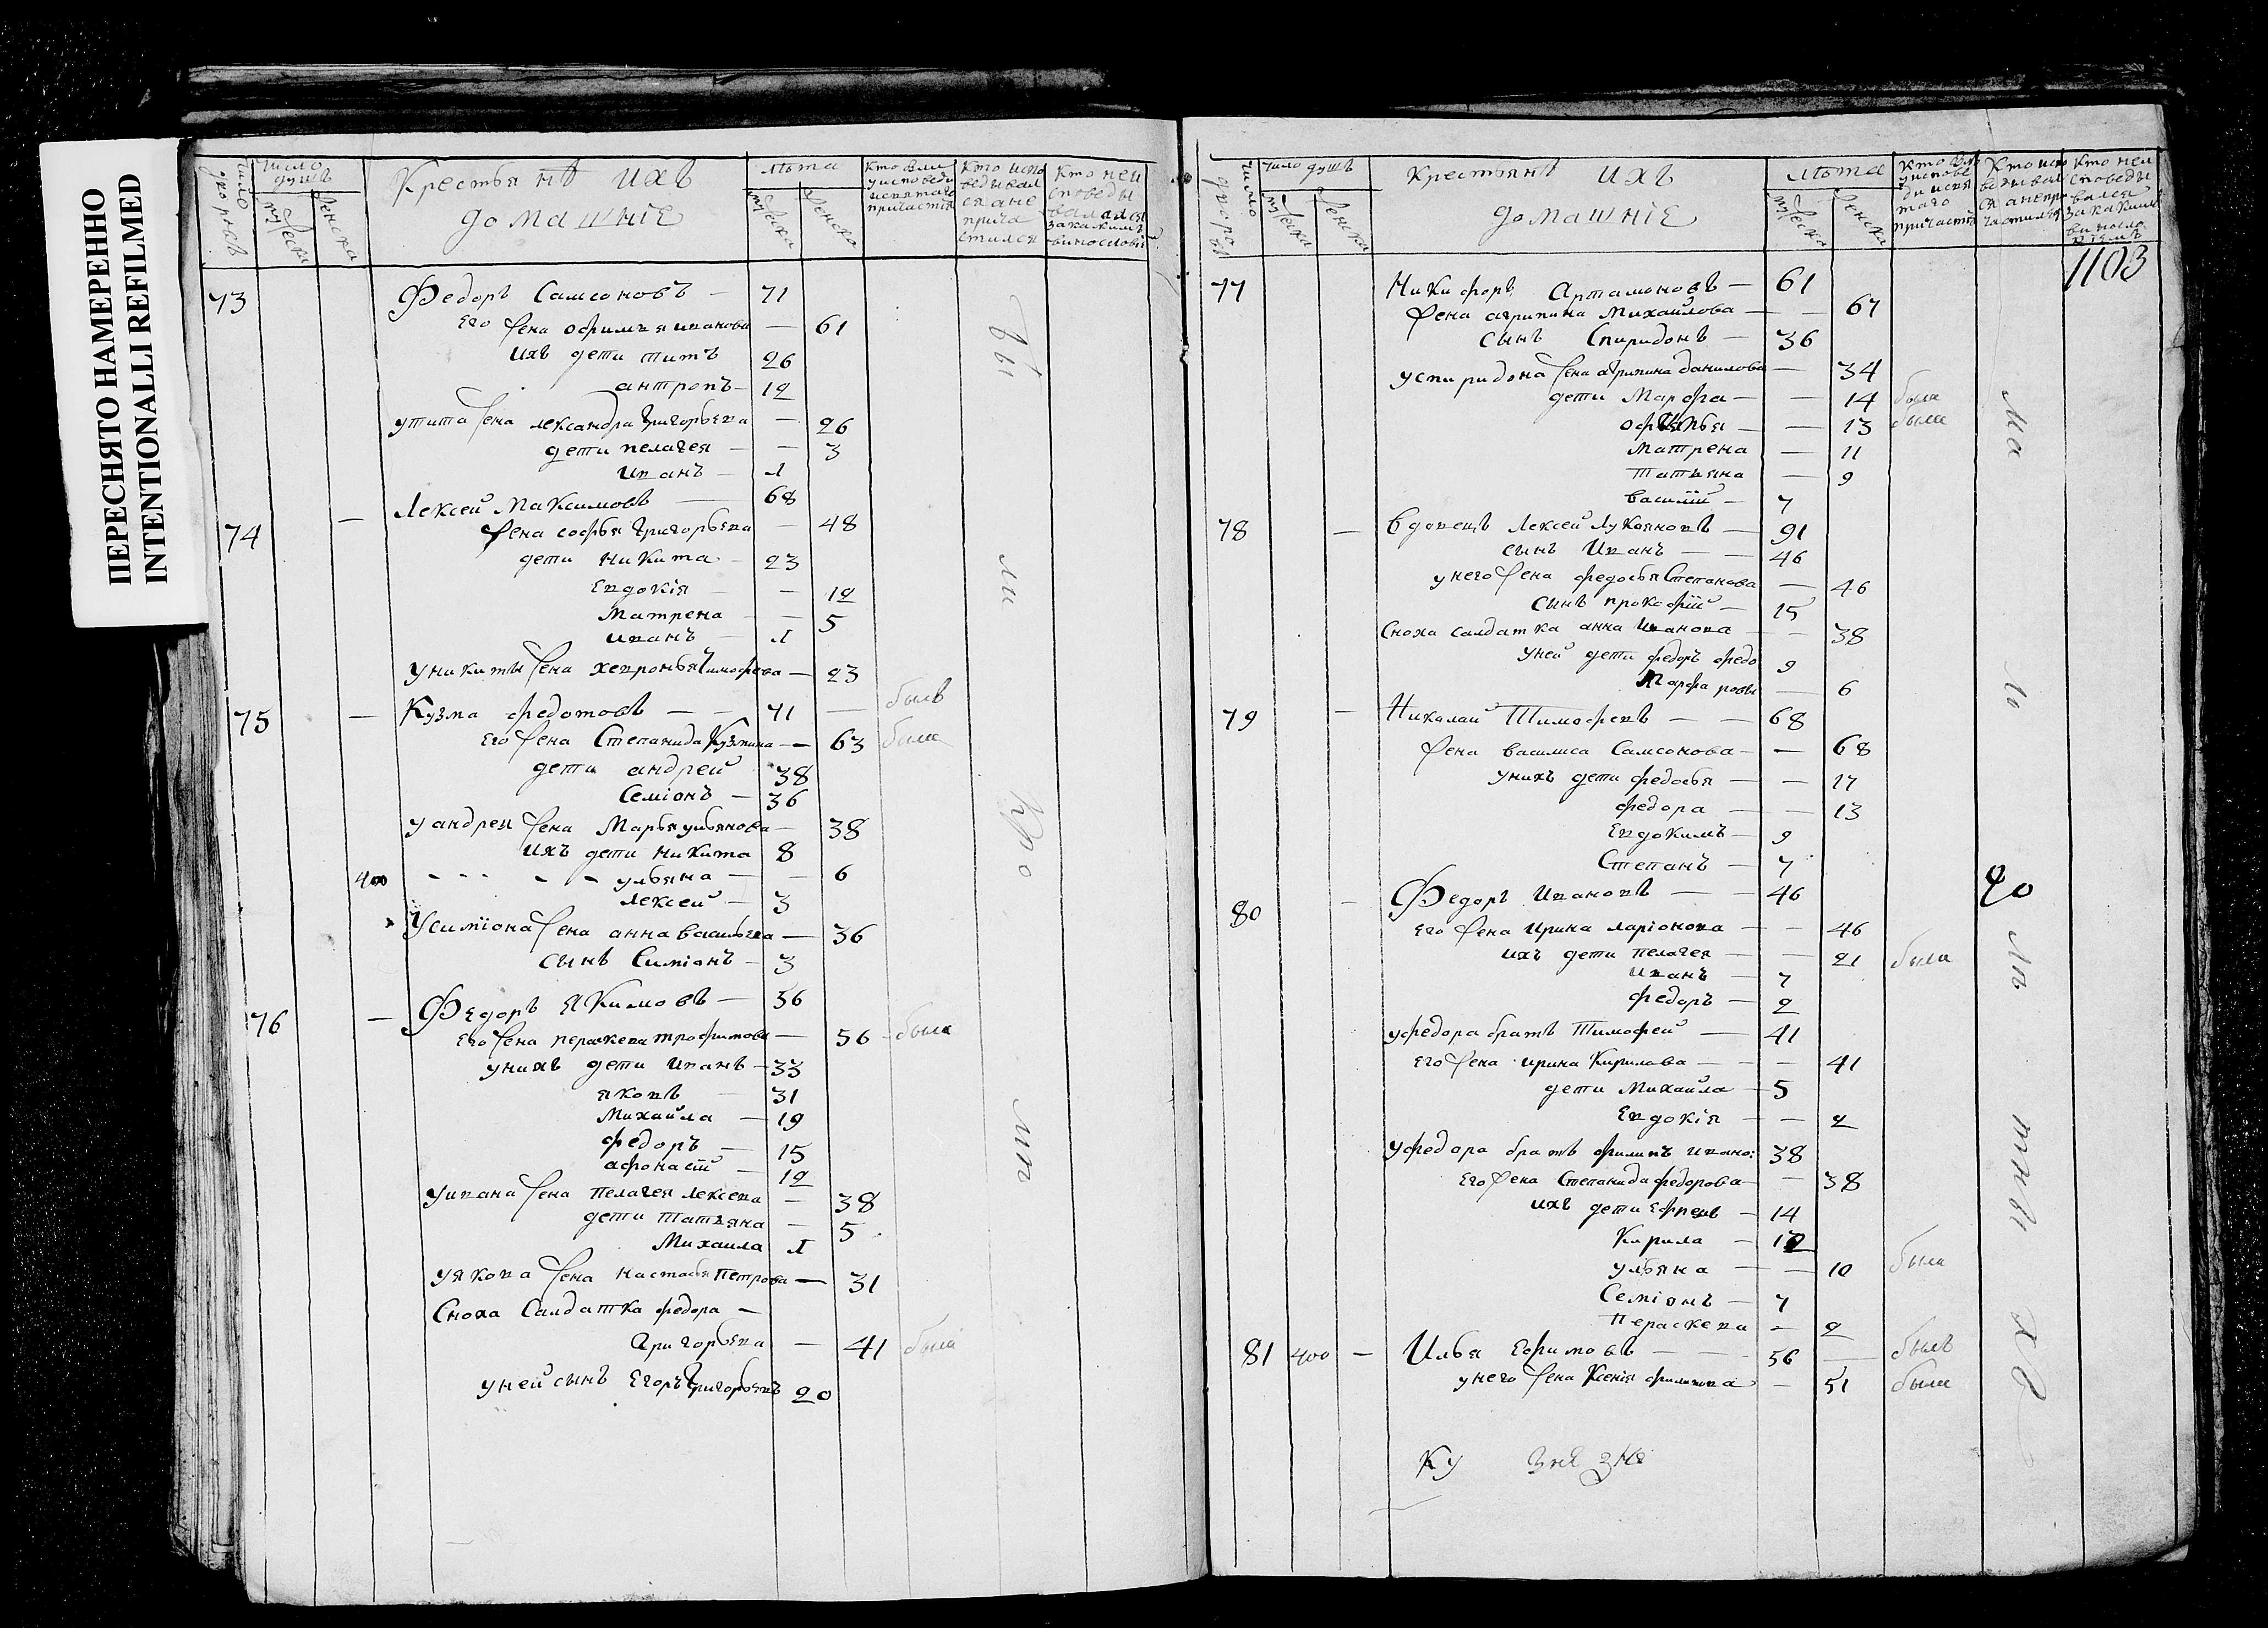 ПЕРЕСНЯТО НАМЕРЕННО
INTENTIONALLI REFILMED
число дворовъ
число душъ
мужеска
женска
Крестьянъ ихъ
домашніе
лѣта
мужеска
женска
Кто исповедывался а не причастился
73 Федоръ Самсоновъ — 71
его жена офимья иванова — 61
ихъ дети титъ 26
антропъ — 12
у тита жена лександра григорьева — 26
дети пелагея — — 3
иванъ — 1
74 — Лексей Максимовъ — 68
жена софья григорьева — 48
дети никита — 23
евдокія — — 12
матрена — — 5
иванъ — 1
у никиты жена хевронья тимофева — 23
75 — Кузма федотовъ — — 71 — былъ
его жена Степанида Кузмина — — 63 была
дети андрей 38
Семіонъ — 36
у андрея жена Марья ульянова — 38
ихъ дети никита 8
400 - - - - - ульяна — — 6
лексей — 3
У симіона жена анна васильева — 36
сынъ Симіонъ — 3
76 — Федоръ Якимовъ — 56
его жена пераскева трофимова — 56 — была
у нихъ дети иванъ — 33
яковъ — 31
Михайла — 19
федоръ — 15
афонасій — 12
у ивана жена пелагея лексева — 38
дети татьяна — 5
Михаила 1
у якова жена настасья петрова — 31
Сноха Салдатка федора —
григорьева — 41 была
у ней сынъ егоръ григорьевъ 20
число дворовъ
число душъ
мужеска
женска
крестьянъ ихъ
домашніе
лѣта
мужеска
женска
1103
77 Никифоръ Артамоновъ — 61
жена агрипина Михайлова — — 67
сынъ Спиридонъ — 36
у спиридона жена агрипина данилова — 34
дети Марфа — — 14 была
офимья — — 13 была
Матрена — 11
татьяна — 9
василій — 7
78 — вдовецъ лексей лукояновъ — 91
сынъ иванъ — — 46
у него жена федосья Степанова — 46
сынъ прокофій — 15
Сноха салдатка анна иванова — — 38
у ней дети федоръ федо 9
Марфа ровы — 6
79 — Николай Тимофевъ — — 68
жена василиса Самсонова — — 68
у нихъ дети федосья — — 17
федора — — 13
евдокимъ — 9
Степанъ — 7
80 — Федоръ ивановъ — — 46
его жена ирина ларіонова — — 46
ихъ дети пелагея — — 21 была
иванъ — 7
федоръ — 2
у федора братъ Тимофей — 41
его жена ирина Кирилова — — — 41
дети Михайла — 5
евдокія — — 2
у федора братъ филипъ ивано: 38
его жена Степанида федорова — — 38
ихъ дети ефремъ — 14
Кирила — 12
ульяна — — 10 была
Семіонъ — 7
пераскева — 2
81 400 — Илья ефимовъ — — 56 — былъ
у него жена Ксенія филипова — 51 была